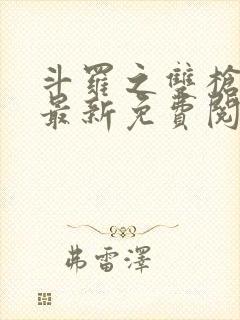 斗羅之雙槍
最新免費閱
弗雷澤